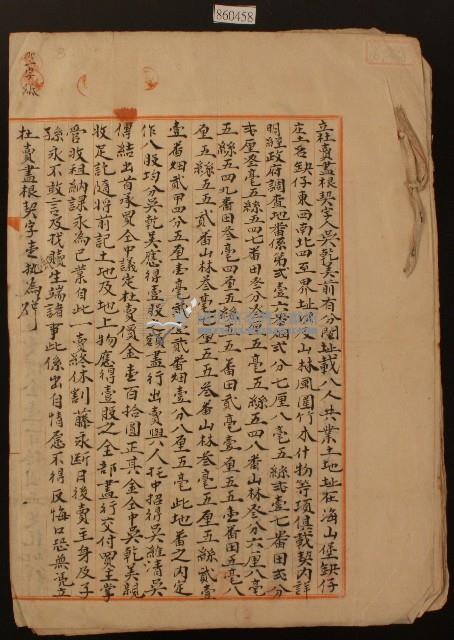 860458
立杜賣盡根契字人吳乾美前有分鬮址載八人共業土地址在海山堡缺仔
庄土名缺仔東西南北四至界址及山林風圍竹木什物等項俱載契內詳
明經政府調查地番係第弍壹六番烟弍分七厘八毫五絲弍壹七番田弍分
弍厘叁毫五絲五四七番田叁分叁厘五毫五絲五四八番山林叁分六厘八毫
五絲五四九番田叁毫四厘五絲五五番田弍毫壹厘五五壹番田五毫八
厘五絲五五弍番山林叁毫七厘五五叁番山林叁毫五厘五絲弍壹
壹番烟弍甲四分五厘壹毫弍弍番烟壹分八厘五毫此地番之內定
作八股均分吳乾美應得壹股額盡行出賣與人托中招得吳維清吳
傳結出首承買仝中議定杜賣價金壹百拾圓正其金仝中吳乾美親
收足訖隨將前記土地及地上物應得壹股之全部盡行交付買主掌
管收租納課永為己業自此一賣終休割藤永斷日後賣主身及子
孫永不敢言及找贖生端諸事此係出自情愿不得反悔口恐無憑立
杜賣盡根契字壹紙為炤